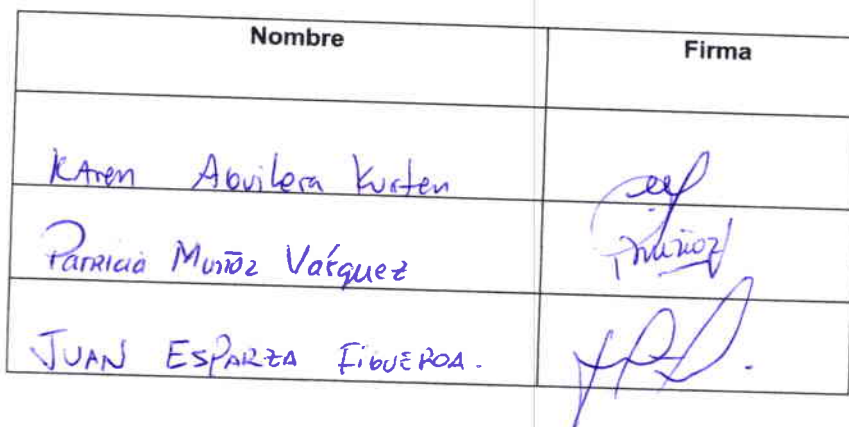 Nombre Firma
Karen Aguilera Kurten
Patricia Muñoz Vázquez PMuñoz
JUAN ESPARZA FIGUEROA.